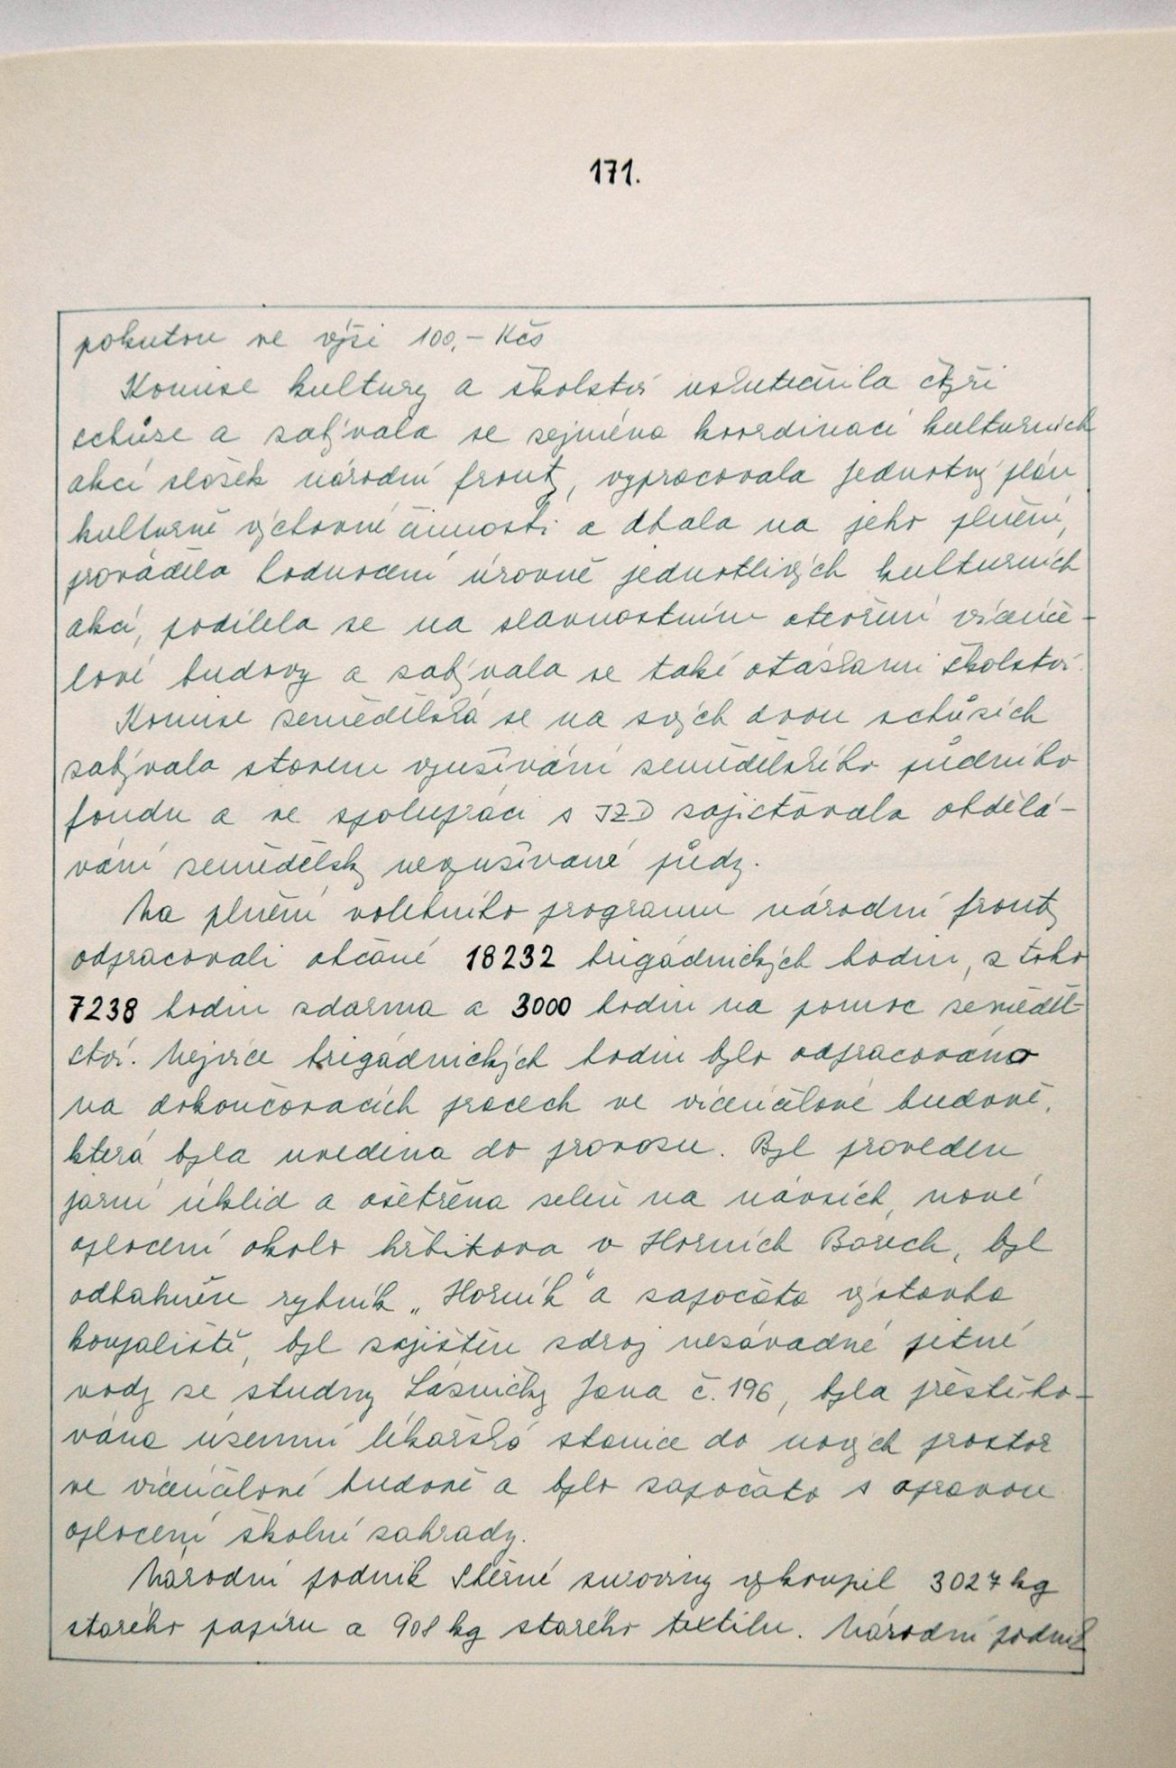 171.
pokutou ve výši 100,- Kčs
Komise kultury a školství uskutečnila čtyři
schůze a zabývala se zejména koordinací kulturních
akcí složek národní fronty, vypracovala jednotný plán
kulturně výchovné činnosti a dbala na jeho plnění,
prováděla hodnocení úrovně jednotlivých kulturních
akcí, podílela se na slavnostním otevření víceúče-
lové budovy a zabývala se také otázkami školství.
Komise zemědělská se na svých dvou schůzích
zabývala stavem využívání zemědělského půdního
fondu a ve spolupráci s JZD zajišťovala obdělá-
vání zemědělsky nevyužívané půdy.
Na plnění volebního programu národní fronty
odpracovali občané 18232 brigádnických hodin, z toho
7238 hodin zdarma a 3000 hodin na pomoc zeměděl-
ství. Nejvíce brigádnických hodin bylo odpracováno
na dokončovacích pracech ve víceúčelové budově,
která byla uvedena do provozu. Byl proveden
jarní úklid a ošetřena zeleň na návsích, nové
oplocení okolo hřbitova v Horních Borech, byl
odbahněn rybník „Horník" a započata výstavba
koupaliště, byl zajištěn zdroj nezávadné pitné
vody ze studny Lásničky Jana č. 196, byla přestěho-
vána územní lékařská stanice do nových prostor
ve víceúčelové budově a bylo započato s opravou
oplocení školní zahrady.
Národní podnik Sběrné suroviny vykoupil 3027 kg
starého papíru a 908 kg starého textilu. Národní podnik